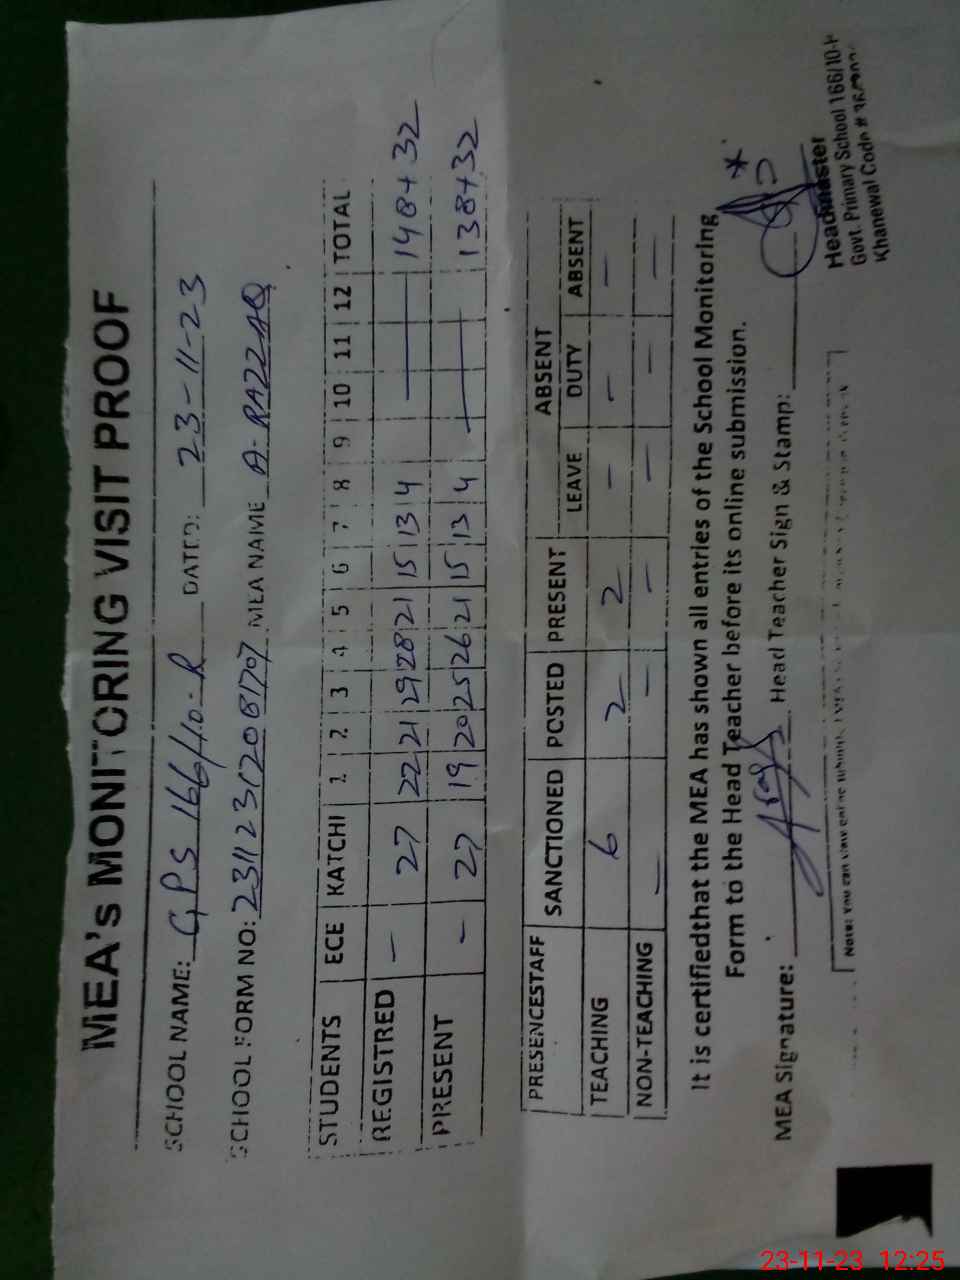 MEA's MONITORING VISIT PROOF
SCHOOL NAME: G.P.S 166/10-R DATED: 23-11-23
SCHOOL FORM NO: 23112312081707 MEA NAME A-RAZZAQ
STUDENTS ECE KATCHI 1 2 3 4 5 6 7 8 9 10 11 12 TOTAL
REGISTRED - 27 22 21 29 28 21 15 13 4 — 148+32
PRESENT - 27 19 20 25 26 21 15 13 4 — 138+32
PRESENCESTAFF SANCTIONED POSTED PRESENT ABSENT
LEAVE DUTY ABSENT
TEACHING 6 2 2 - - -
NON-TEACHING - - - - - -
It is certifiedthat the MEA has shown all entries of the School Monitoring
Form to the Head Teacher before its online submission.
MEA Signature: Head Teacher Sign & Stamp:
Headmaster
Govt. Primary School 166/10-
Khanewal Code #
Note: You can view online
23-11-23 12:25